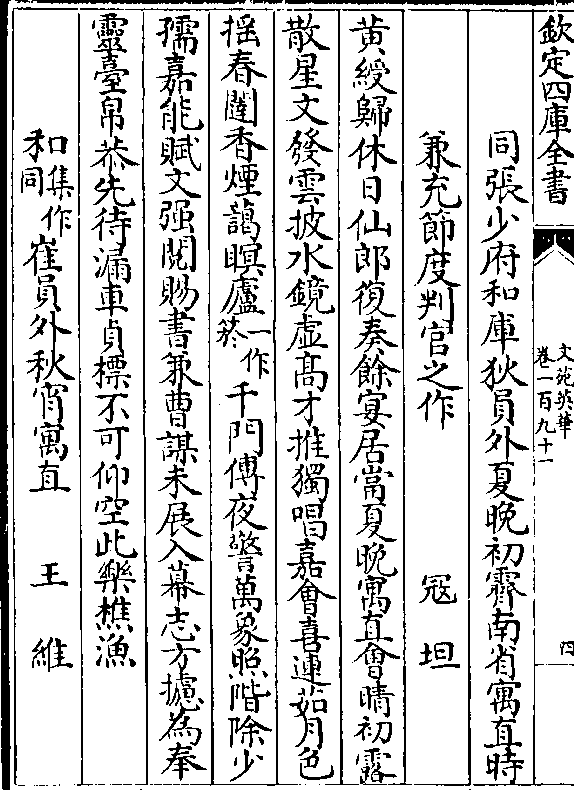 欽定四庫全書
文苑英華
卷一百九十一
四
同張少府和庫狄員外夏晚初霽南省寓直時
兼充節度判官之作
寇坦
黄綬歸休日仙郎復奏餘宴居當夏晚寓直會晴初露
散星文發雲披水鏡虚髙才推獨唱嘉會喜連茹月色
揺春闥香煙藹暝廬一作菸千門傳夜警萬象照階除少
孺嘉能賦文强閲賜書兼曹謀未展入幕志方攄為奉
靈臺帛恭先待漏車貞標不可仰空此樂樵漁
和集作同崔員外秋宵寓直
王維